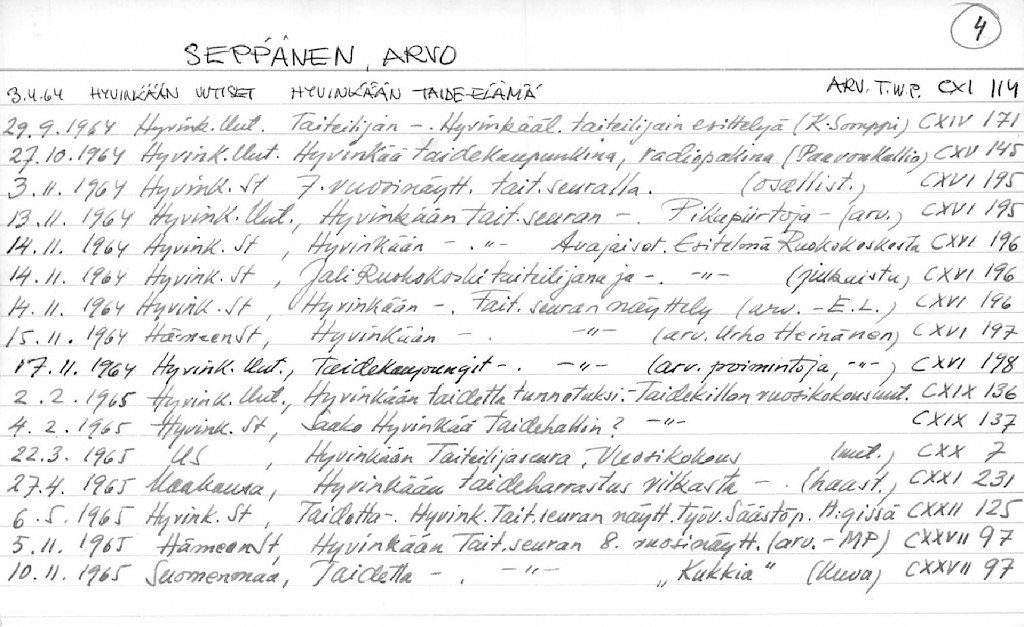 4
SEPPÄNEN, ARVO
3.4.64 HYVINKÄÄN UUTISET HYVINKÄÄN TAIDE-ELÄMÄ ARV. T.W.P. CXI 114
29.9.1964 Hyvink. Uut. Taiteilijan -. Hyvinkääl. taiteilijain esittelyä (K. Somppi) CXIV 171
27.10.1964 Hyvink. Uut. Hyvinkää taidekaupunkina, radiopakina (Paavonkallio) CXV 145
3.11.1964 Hyvink. St 7. vuosinäytt. tait.seuralla. (osallist.) CXVI 195
13.11.1964 Hyvink. Uut., Hyvinkään tait.seuran -. Pikapiirtoja - (arv.) CXVI 195
14.11.1964 Hyvink. St, Hyvinkään - . -"- Avajaiset. Esitelmä Ruokokoskesta CXVI 196
14.11.1964 Hyvink. St, Jali Ruokokoski taiteilijana ja -. -"- (julkaistu) CXVI 196
14.11.1964 Hyvink. St, Hyvinkään -. Tait.seuran näyttely (arv. - E.L.) CXVI 196
15.11.1964 HämeenSt, Hyvinkään - -"- (arv. Urho Heinänen) CXVI 197
17.11.1964 Hyvink. Uut., Taidekaupungit -. -"- (arv. poimintoja, -"-) CXVI 198
2.2.1965 Hyvink. Uut., Hyvinkään taidetta tunnetuksi. - Taidekillan vuosikokousuut. CXIX 136
4.2.1965 Hyvink. St, Saako Hyvinkää Taidehallin? -"- CXIX 137
22.3.1965 US, Hyvinkään Taiteilijaseura, Vuosikokous (uut.) CXX 7
27.4.1965 Maakansa, Hyvinkään taideharrastus vilkasta - . (haast.) CXXI 231
6.5.1965 Hyvink. St, Taidetta -. Hyvink. Tait.seuran näytt. Työv. Säästöp. H:gissä CXXII 125
5.11.1965 HämeenSt, Hyvinkään Tait.seuran 8. vuosinäytt. (arv. - MP) CXXVII 97
10.11.1965 Suomenmaa, Taidetta - . -"- "Kukkia" (kuva) CXXVII 97